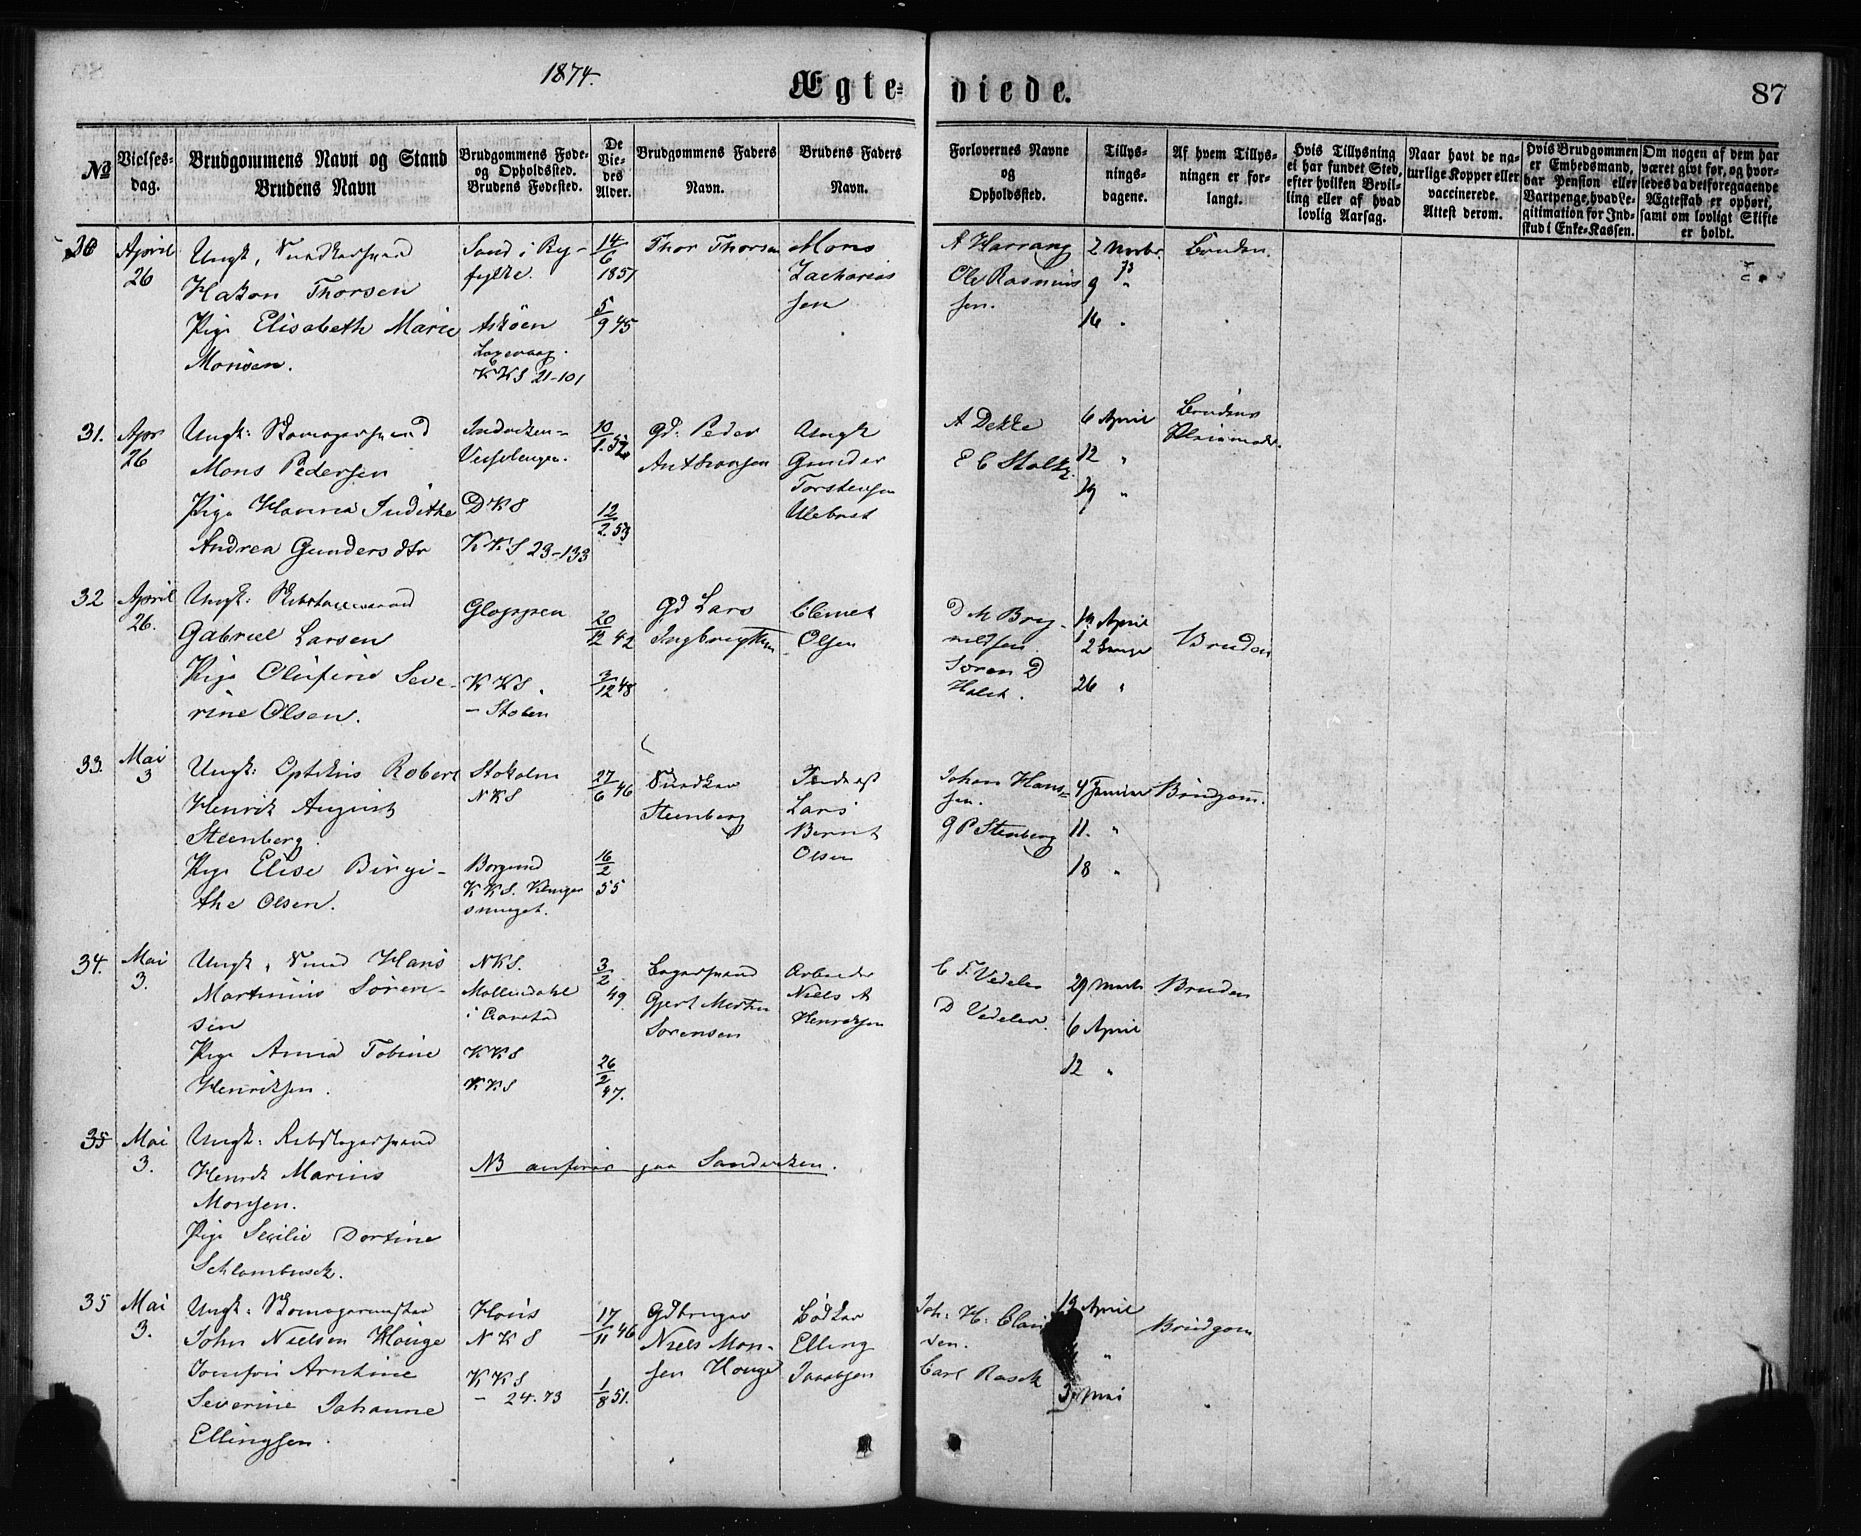 1874.
Ægte=
viede.
87
No
Vielses-
dag.
Brudgommens Navn og Stand
Brudens Navn
Brudgommens Føde-
og Opholdssted.
Brudens Fødested.
De
Vie-
des
Alder.
Brudgommens Faders
Navn.
Brudens Faders
Navn.
Forlovernes Navne
og
Opholdssted.
Tillys-
nings-
dagene.
Af hvem Tillys-
ningen er for-
langt.
Hvis Tillysning
ei har fundet Sted,
efter hvilken Bevil-
ling eller af hvad
lovlig Aarsag.
Naar havt de na-
turlige Kopper eller
vaccinerede.
Attest derom.
Hvis Brudgommen
er Embedsmand,
har Pension eller
Vartpenge, hvad Le-
gitimation for Ind-
skud i Enke-Kassen.
Om nogen af dem har
været givt før, og hvor-
ledes da det foregaaende
Ægteskab er ophørt,
samt om lovligt Skifte
er holdt.
30
April
26
Ungk, Snedkersvend
Hakon Thorsen
Pige Elisabeth Marie
Monsen.
Sand i Ry-
fylke.
Askøen
KKS 21-101
14/6
1851
5/9 45
Thor Thorsen
Mons
Zacharias
sen
A Harrang
Ole Rasmus
sen.
2
9 "
16 "
Bruden.
31.
Apr
26
Ungk: Skomagersvend
Mons Pedersen
Pige Hanna Judithe
Andrea Gundersdtr
DKS
KKS 23-133
10/1 52
12/2 53
Gd: Peder
Anthonsen
Ungk
Gunder
Torstensen
A Dekke
E C Stoltz
6 April
12 "
19 "
Brudens
32
April
26.
Ungk:
Gabriel Larsen
Pige Olufine Seve-
rine Olsen.
Gloppen
KKS.
- Stølen
20/12 42
3/12 48
Gd Lars
Ingbrigtsen
Clemet
Olsen
D M Bry-
nildsen
Søren D
Holst.
19 April
26 "
Bruden
33.
Mai
3
Ungk: Optikus Robert
Henrik August
Steenberg.
Pige Elise Birgi-
the Olsen.
Stokolm
NKS
Borgund
KKS.
smuget.
27/6 46
16/2
55
Snedker
Steenberg
Lars
Bernt
Olsen
Johan Hans-
sen.
G P Steenberg
4 Januar
11. "
18 "
Brudgom.
34.
Mai
3.
Ungk, Smed Hans
Martinus Søren-
sen
Pige Anna Tobine
Henriksen.
NKS.
Møllendahl
i Aarstad
KKS
KKS
3/2
49.
26/2
47.
Gjert Morten
Sørensen
Arbeider
Niels A
Henriksen
C F. Vedeler
D Vedeler.
29 Marts
6 April
12 "
Bruden
35
Mai
3.
Ungk: Rebslagersvend
Henrik Marius
Monsen.
Pige Secilie Dortine
Schlambusck.
NB anføres paa Sandviken.
35
Mai
3.
Ungk: Skomagermester
John Nielsen Houge
Jomfru Arntine
Severine Johanne
Ellingsen.
Hous
NKS
KKS
- 24.73
17/11 46
1/8 51.
Gdbruger
Niels Mon-
sen Houge
Bødker
Elling
Jacobsen
Joh: H: Clau
sen.
Carl Rasck
19 April
"
3 Mai
Brudgom